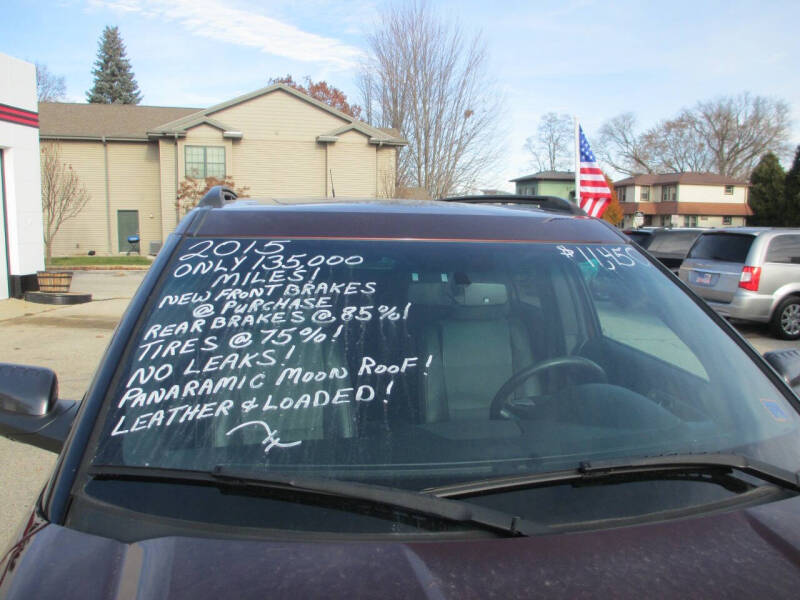 2015
ONLY 135000
MILES!
NEW FRONT BRAKES
@ PURCHASE
REAR BRAKES @ 85%!
TIRES @ 75%!
NO LEAKS!
PANARAMIC MOON ROOF!
LEATHER & LOADED!
$11,450